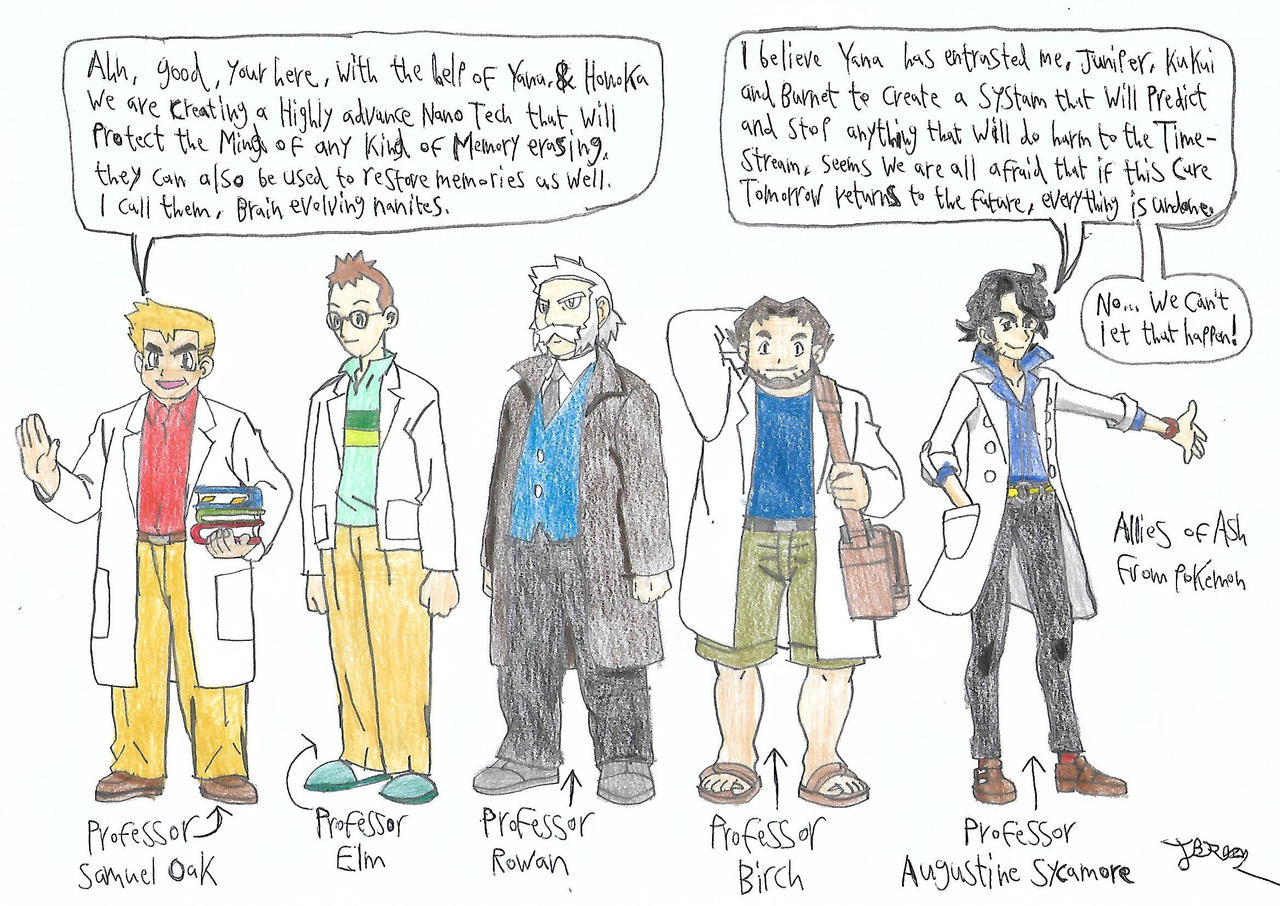 Ahh, good, your here, with the help of Yana, & Honoka
We are creating a Highly advance Nano Tech that will
Protect the Minds of any Kind of Memory erasing.
they can also be used to restore memories as well.
I call them, Brain evolving nanites.
I believe Yana has entrusted me, Juniper, Kukui
and Burnet to Create a SyStam that Will Predict
and Stop anything that Will do harm to the Time-
Stream, Seems We are all afraid that if this Cure
Tomorrow returns to the future, everything is undone.
No... We Can't
let that happen!
Allies of Ash
From Pokemon
Professor
Samuel Oak
Professor
Elm
Professor
Rowan
Professor
Birch
Professor
Augustine Sycamore